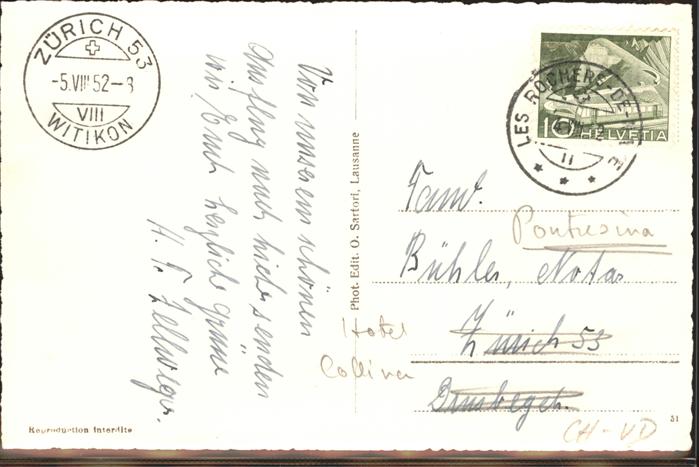 ZÜRICH 53
-5.VIII.52-8
VIII
WITIKON
Von unserem schönen
Ausflug nach hier senden
wir Euch herzliche Grüsse
H. F. Zellweger.
Phot. Edit. O. Sartori, Lausanne
Reproduction interdite
LES ROCHERS-DE-
10 HELVETIA
Fam.
Pontresina
Bühler, Notar
Hotel
Zürich 53
Collina
51
CH-VD